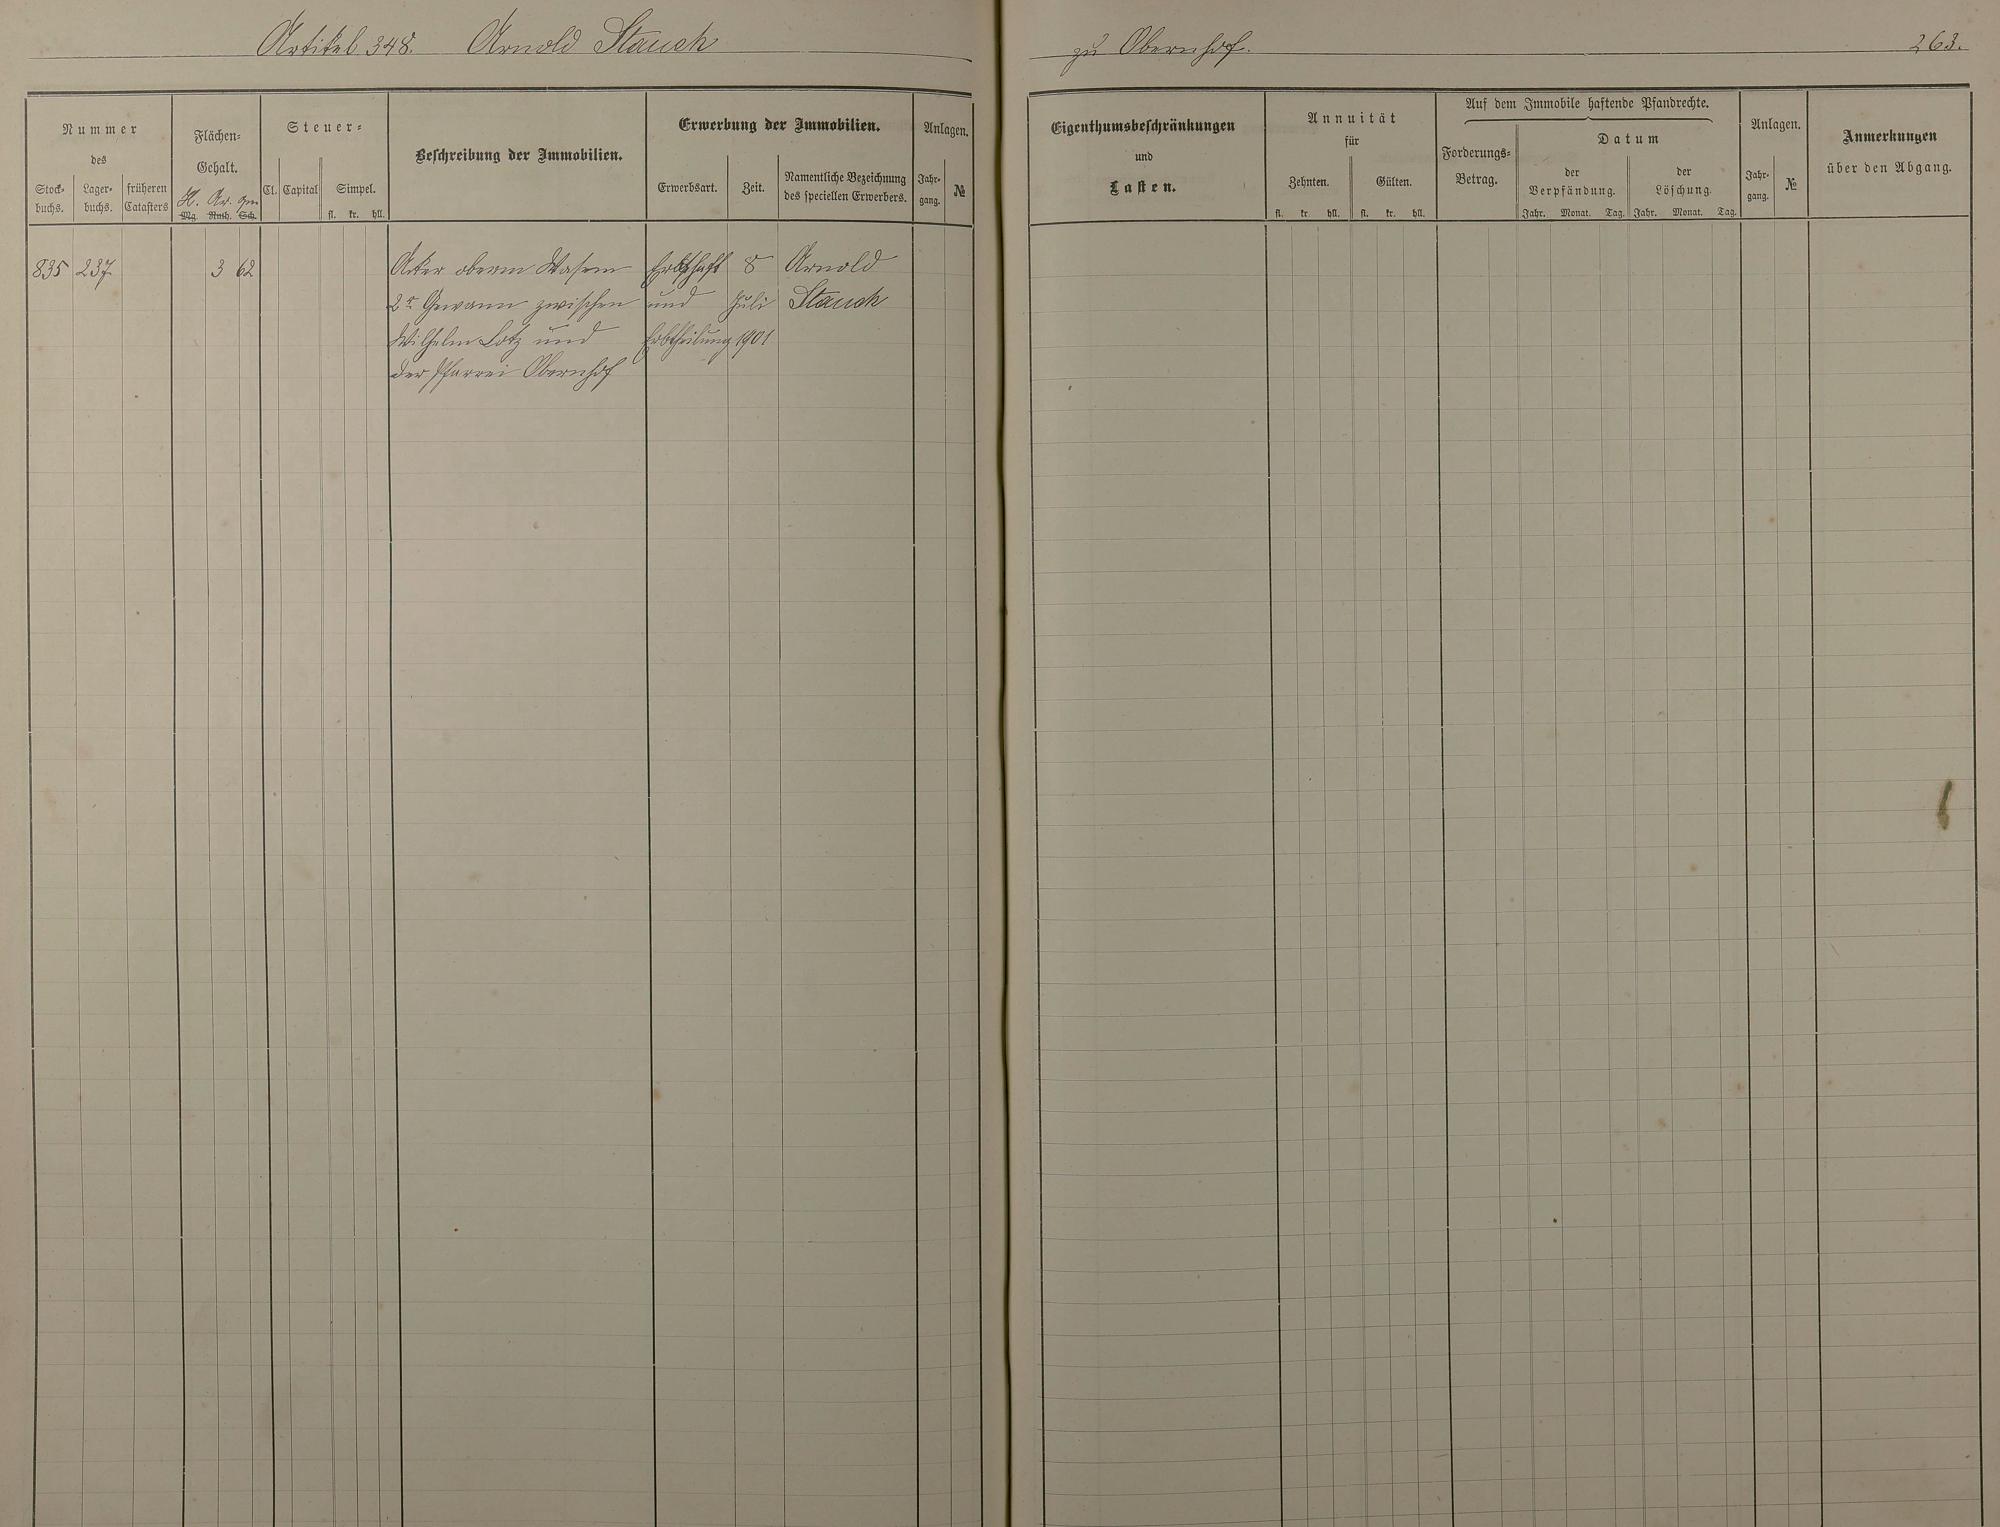 Artikel 348. Arnold Stauch
zu Obernhof.
263.
Nummer
des
Stock-
buchs.
Lager-
buchs.
früheren
Catasters
Flächen-
Gehalt.
H. Ar. qm
Mg. Ruth. Sch.
Steuer-
Cl.
Capital
Simpel.
fl. kr. hll.
Beschreibung der Immobilien.
Erwerbung der Immobilien.
Erwerbsart.
Zeit.
Namentliche Bezeichnung
des speciellen Erwerbers.
Anlagen.
Jahr-
gang.
№
Eigenthumsbeschränkungen
und
Lasten.
Annuität
für
Zehnten.
Gülten.
fl. kr. hll. fl. kr. hll.
Auf dem Immobile haftende Pfandrechte.
Forderungs-
Betrag.
Datum
der
Verpfändung.
der
Löschung.
Jahr. Monat. Tag. Jahr. Monat. Tag.
Anlagen.
Jahr-
gang.
№
Anmerkungen
über den Abgang.
835 237 3 62 Acker oberm Wasem Erbschaft 8 Arnold
2r Gewann zwischen und Juli Stauch
Wilhelm Lotz und Erbtheilung 1901
der Pfarrei Obernhof